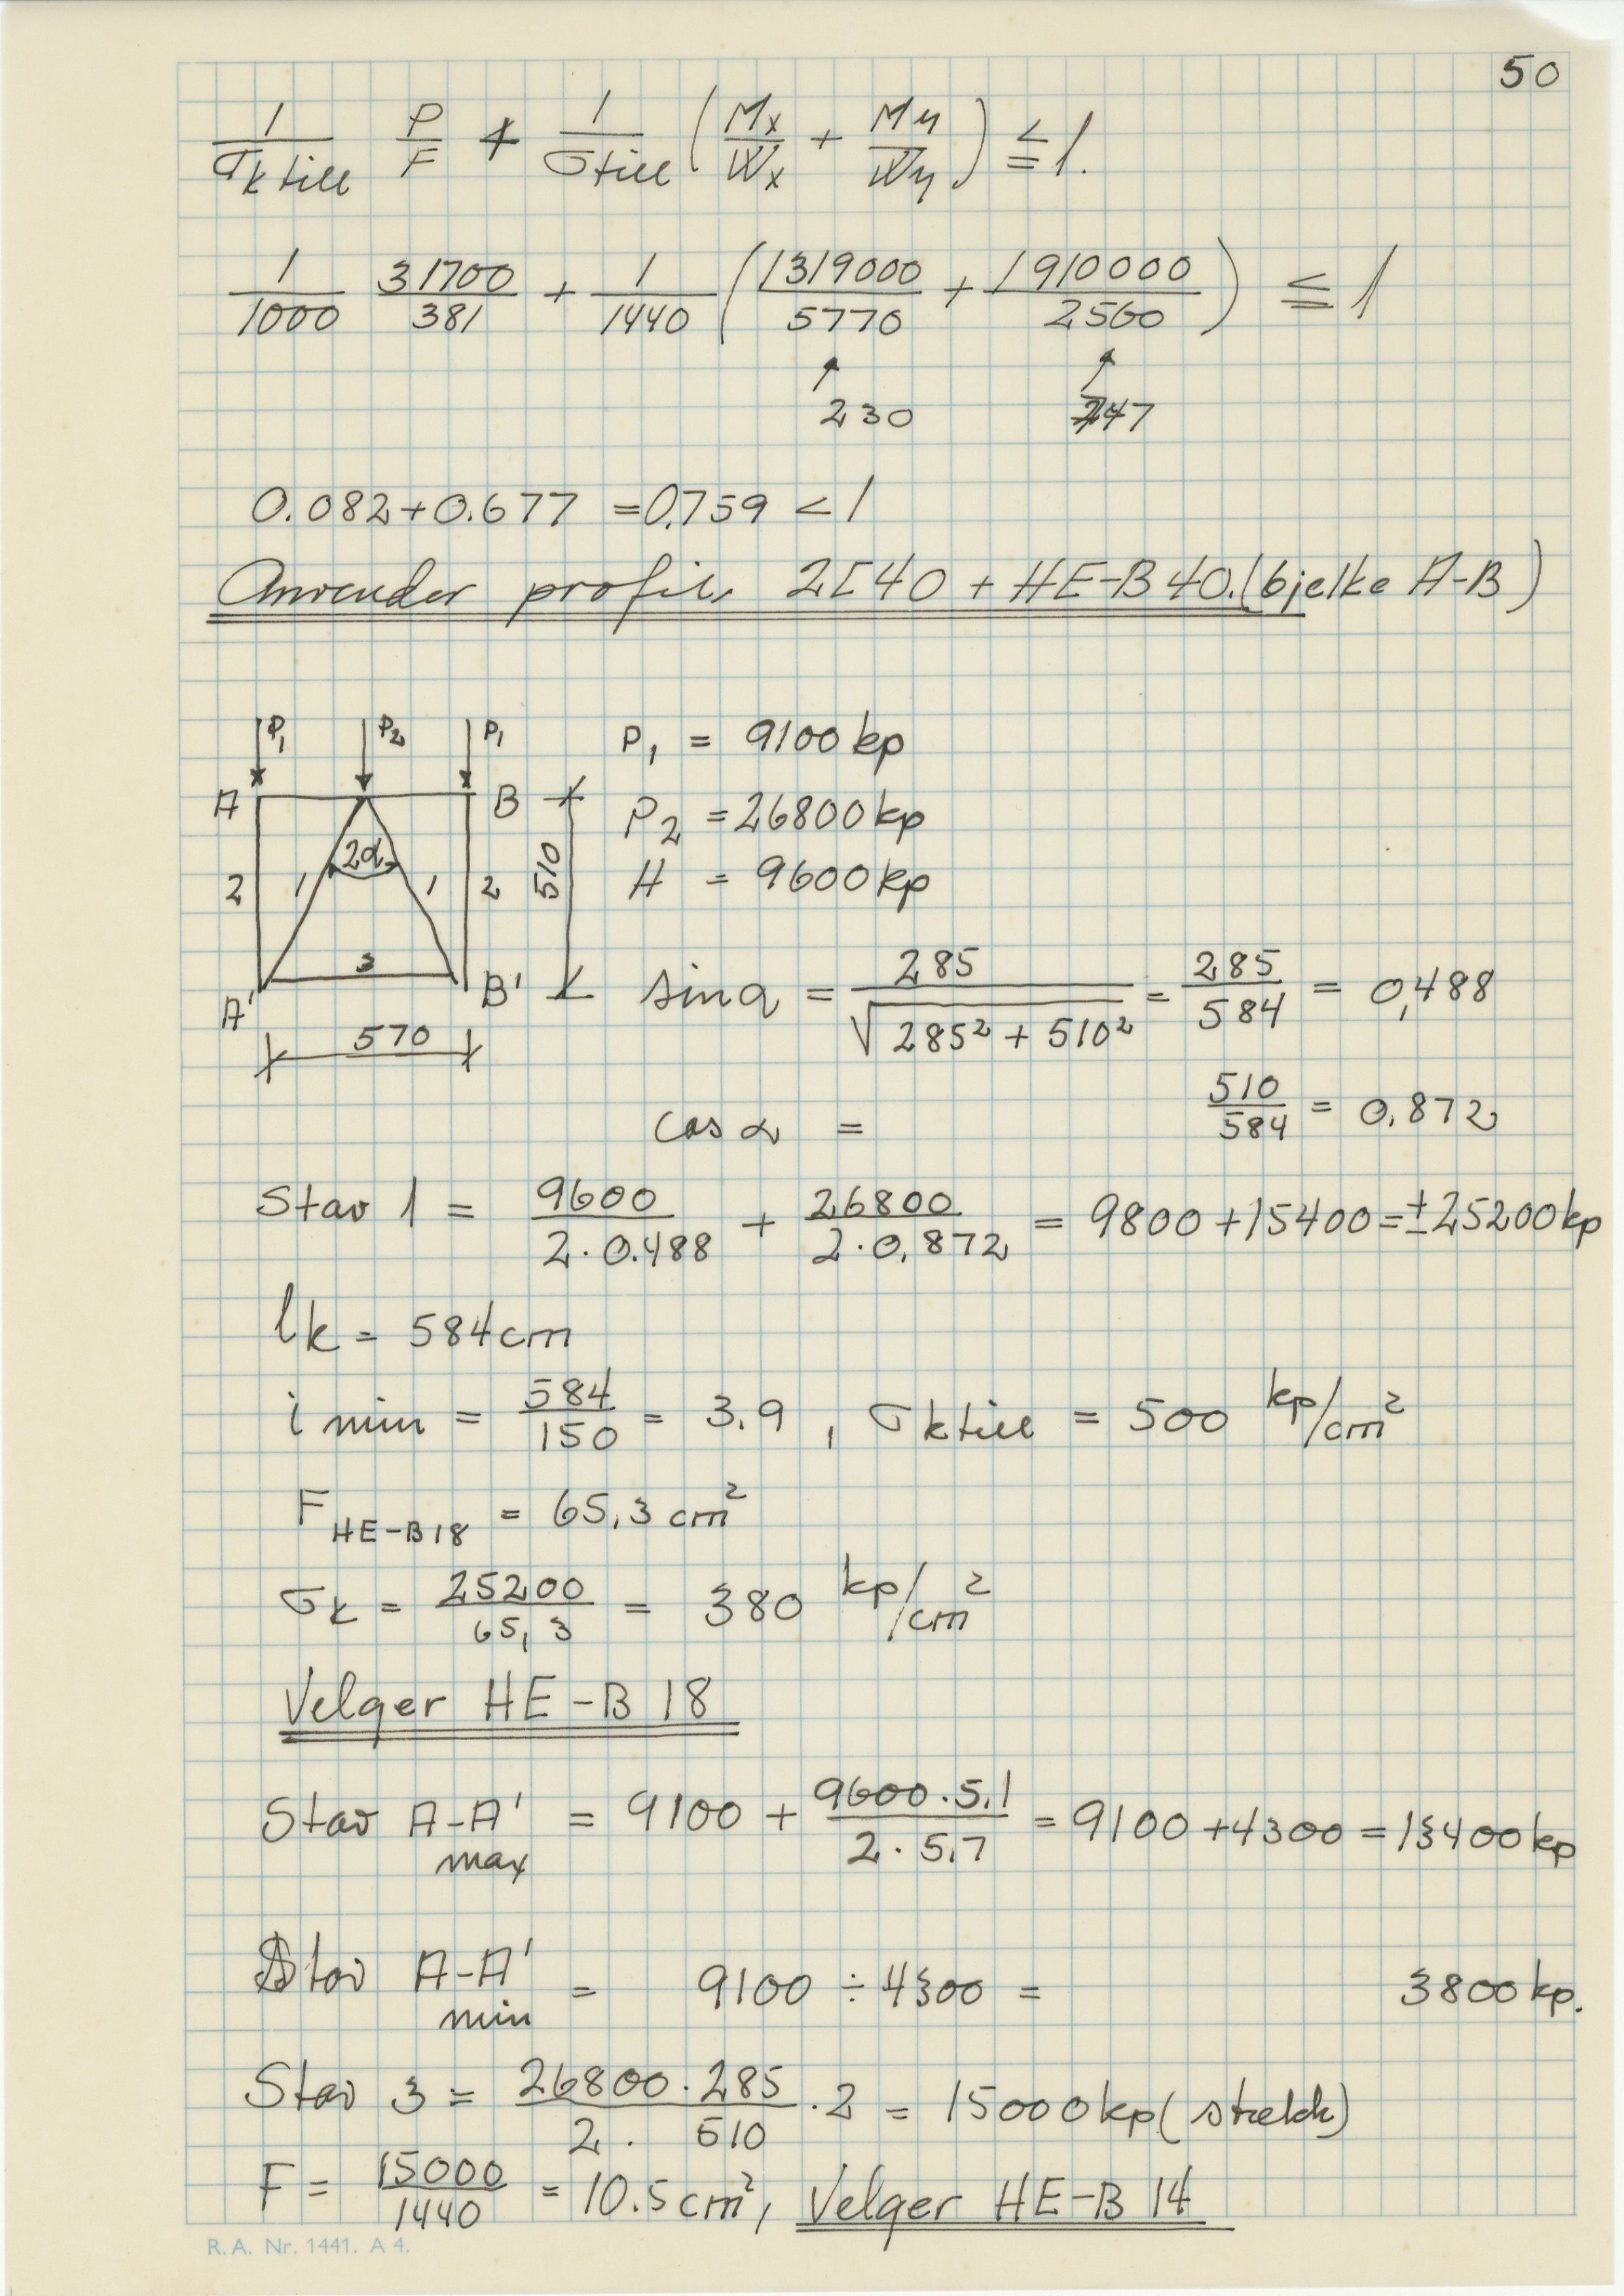 50
1/σk till P/F + 1/σtill (Mx/Wx + My/Wy) ≤ 1.
1/1000 31700/381 + 1/1440 (1319000/5770 + 1910000/2560) ≤ 1
230 747
0.082+0.677 =0.759 < 1
Anvender profil, 2[40 + HE-B40.(bjelke A-B)
P1 P2 P1 P1 = 9100 kp
A B P2 = 26800 kp
2 1 2α 1 2 510 H = 9600 kp
3
A' B' sinα = 285/√285² + 510² = 285/584 = 0,488
570
cos α = 510/584 = 0,872
Stav 1 = 9600/2·0.488 + 26800/2·0,872 = 9800 +15400 = ±25200 kp
lk = 584 cm
i min = 584/150 = 3.9 , σk till = 500 kp/cm²
F HE-B18 = 65,3 cm²
σk = 25200/65,3 = 380 kp/cm²
Velger HE-B 18
Stav A-A' max = 9100 + 9600·5,1/2·5,7 = 9100 +4300 = 13400 kp
Stav A-A' min = 9100 ÷ 4300 = 3800 kp.
Stav 3 = 26800·285/2· 510 ·2 = 15000 kp (strekk)
F = 15000/1440 = 10.5 cm², Velger HE-B 14
R.A. Nr. 1441. A 4.